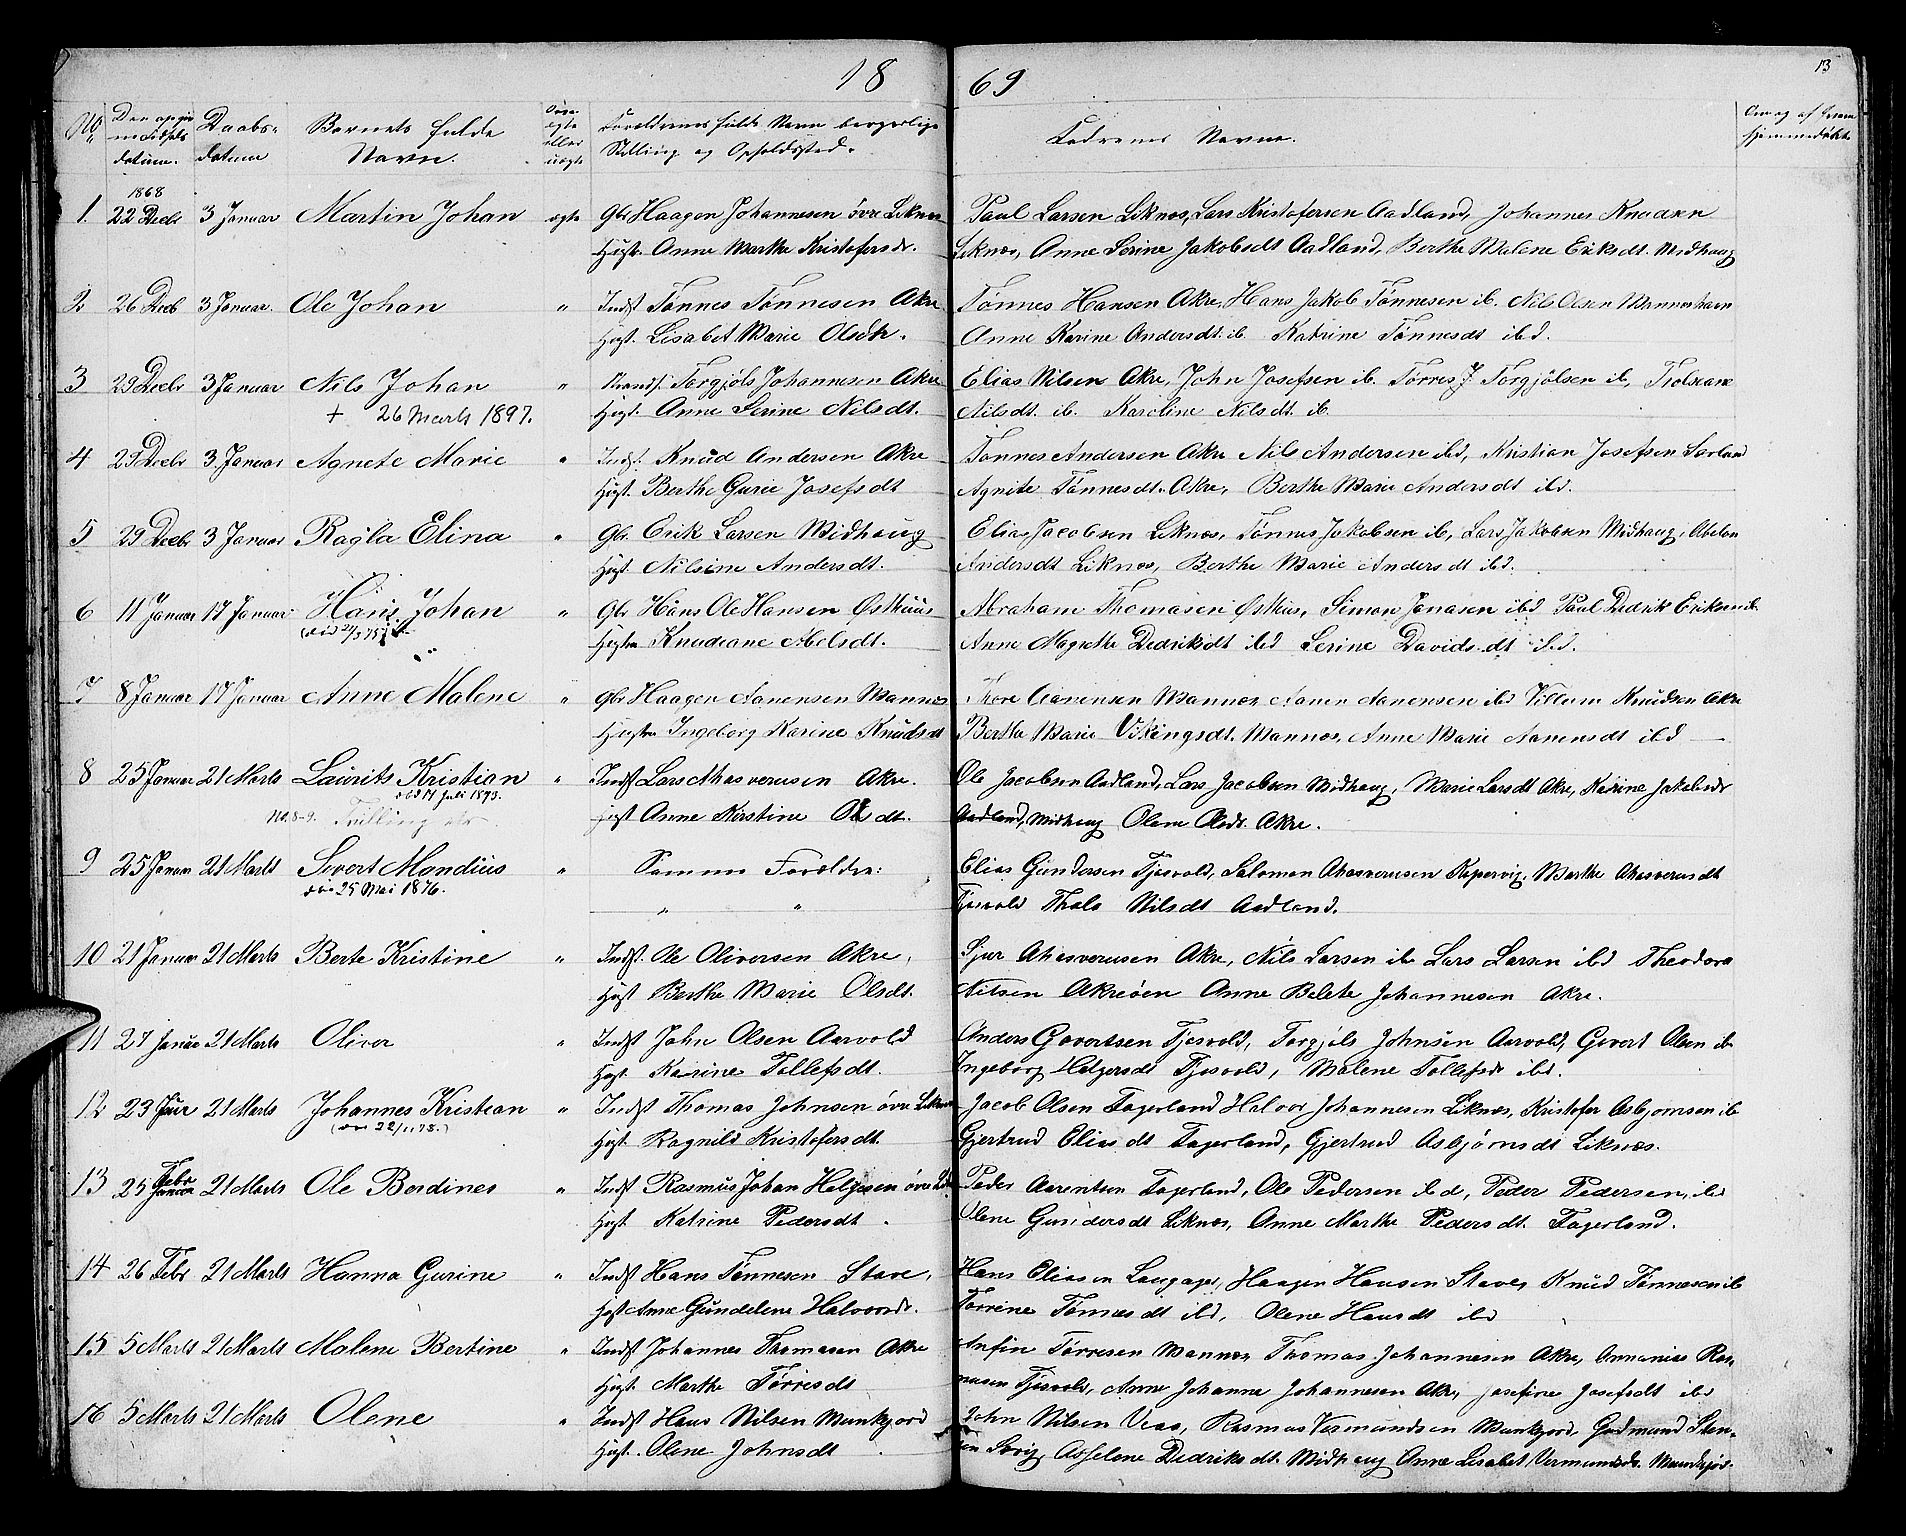 18 69
13
No
Den opgivne Fødselsdatum.
Daabsdatum
Barnets fulde Navn.
ægte eller uægte
Forældrenes fulde Navn borgerlige Stilling og Opholdssted.
Faddernes Navne.
1868
1. 22 Decbr 3 Januar Martin Johan ægte Gbr Haagen Johannesen øvre Liknes Paul Larsen Liknes, Lars Kristofersen Aadland, Johannes Knudsen
Hust. Anne Marthe Kristofersdt. Liknes, Anne Serine Jakobsdt Aadland, Berthe Malene Eriksdt. Midhaug
2 26 Decb 3 Januar. Ole Johan " Indst Tønnes Tønnesen Akre. Tønnes Hansen Akre, Hans Jakob Tønnesen ib. Nils Olsen Mannes
Hust. Lisabet Marie Olsdt. Anne Karine Andersdt. ib Katrine Tønnesdt ibd.
3 29 Decbr 3 Januar Nils Johan " Strands. Torgjøls Johannesen Akre Elias Nilsen Akre, John Josefsen ib. Tørres J. Torgjølsen ib,
+ 26 Marts 1897. Hust. Anne Serine Nilsdt. Nilsdt. ib. Karoline Nilsdt ib.
4 29 Decbr 3. Januar Agnete Marie " Indst. Knud Andersen Akre Tønnes Andersen Akre Nils Andersen ibd, Kristian Josefsen
Hust. Berthe Gurie Josefsdt Agnete Tønnesdt. Akre, Berthe Marie Andersdt ibd.
5 29 Decbr 3 Januar Ragla Elina " Gbr. Erik Larsen Midhaug Elias Jacobsen Liknes, Tønnes Jakobsen ib, Lars Jakobsen Midhaug, Abelon
Hust. Nilsine Andersdt. Andersdt Liknes, Berthe Marie Andersdt ibd.
6 11 Januar 17 Januar Hans Johan " Gbr Hans Ole Hansen Østhuus Abraham Thomasen Østhus, Simon Jonasen ibd Paul Dedrik Eriksen ib.
Hustr Knudeane Abelsdt. Anne Magrethe Dedriksdt ibd Serine Davidsdt ibd.
7 8 Januar 17 Januar Anne Malene " Gbr Haagen Aanensen Mannes Thore Aanensen Mannes, Aanen Aanensen ibd Villum Knudsen Akre
Hustr Ingeborg Karine Knudsdt Berthe Marie Vikingsdt. Mannes, Anne Marie Aanensdt ibd
8 25 Januar 21 Marts Laurits Kristian " Indst Lars Ahasverusen Akre. Ole Jacobsen Aadland, Lars Jacobsen Midhaug, Marie Larsdt Akre, Karine Jakobsdt
død 17 Juli 1893.
No. 8-9. Tvilling
Hust Anne Kirstine Olsdt. Aadland, Midhaug Olene Olsdt. Akre.
9 25 Januar 21 Marts Sivert Mandius " Samme Forældre: Elias Gundersen Tjosvold, Salomon Ahasverusen Kopervig, Marthe Ahasverusdt
død 25 Mai 1876. " " Tjosvold Thala Nilsdt Aadland.
10 21 Januar 21 Marts Berte Kristine " Indst. Ole Oliversen Akre, Sjur Ahasverusen Akre, Nils Larsen ib Lars Larsen ibd Theodora
Hust Berthe Marie Olsdt. Nilsen Akreøen Anne Belete Johannesen Akre.
11 27 Januar 21 Marts Oliver " Indst John Olsen Aarvold Anders Govertsen Tjosvold, Torgjøls Johnsen Aarvold, Govert Olsen ib
Hust. Karine Tollefsdt. Ingeborg Helgesdt Tjosvold, Malene Tollefsdt ibd.
12 23 Januar 21 Marts Johannes Kristian " Indst Thomas Johnsen øvre Liknes Jacob Olsen Fagerland Halvor Johannesen Liknes, Kristofer Asbjørnsen ib
(død 22/11 78.) Hust. Ragnild Kristofersdt. Gjertrud Eliasdt Fagerland, Gjertrud Asbjørnsdt Liknes.
13 25 Febr 21 Marts Ole Berdines " Indst Rasmus Johan Helgesen øvre Peder Aarentsen Fagerland, Ole Pedersen ibd, Peder Pedersen, ibd
Hust. Katrine Pedersdt. Olene Gundersdt Liknes, Anne Marthe Pedersdt. Fagerland.
14 26 Febr 21 Marts Hanna Gurine " Indst Hans Tønnesen Stave, Hans Eliasen Langager, Haagen Hansen Stave, Knud Tønnesen ib
Hust Anne Gundelene Halvorsdt. Torrine Tønnesdt ibd, Olene Hansdt ibd
15 5 Marts 21 Marts Malene Bertine " Indst Johannes Thomasen Akre Anfin Tørresen Mannes Thomas Johannesen Akre, Annanias Ras-
Hust. Marthe Tørrisdt musen Tjosvold, Anne Johanne Johannesen Akre, Josefine Josefsdt ibd
16 5 Marts 21 Marts Olene " Indst Hans Nilsen Munkjord John Nilsen Vea, Rasmus Vermundsen Munkjord, Gudmund Sten-
Hust. Olene Johnsdt sen Sevig, Asselene Dedriksdt. Midhaug Anne Lisabet Vermundsdt. Munkjord